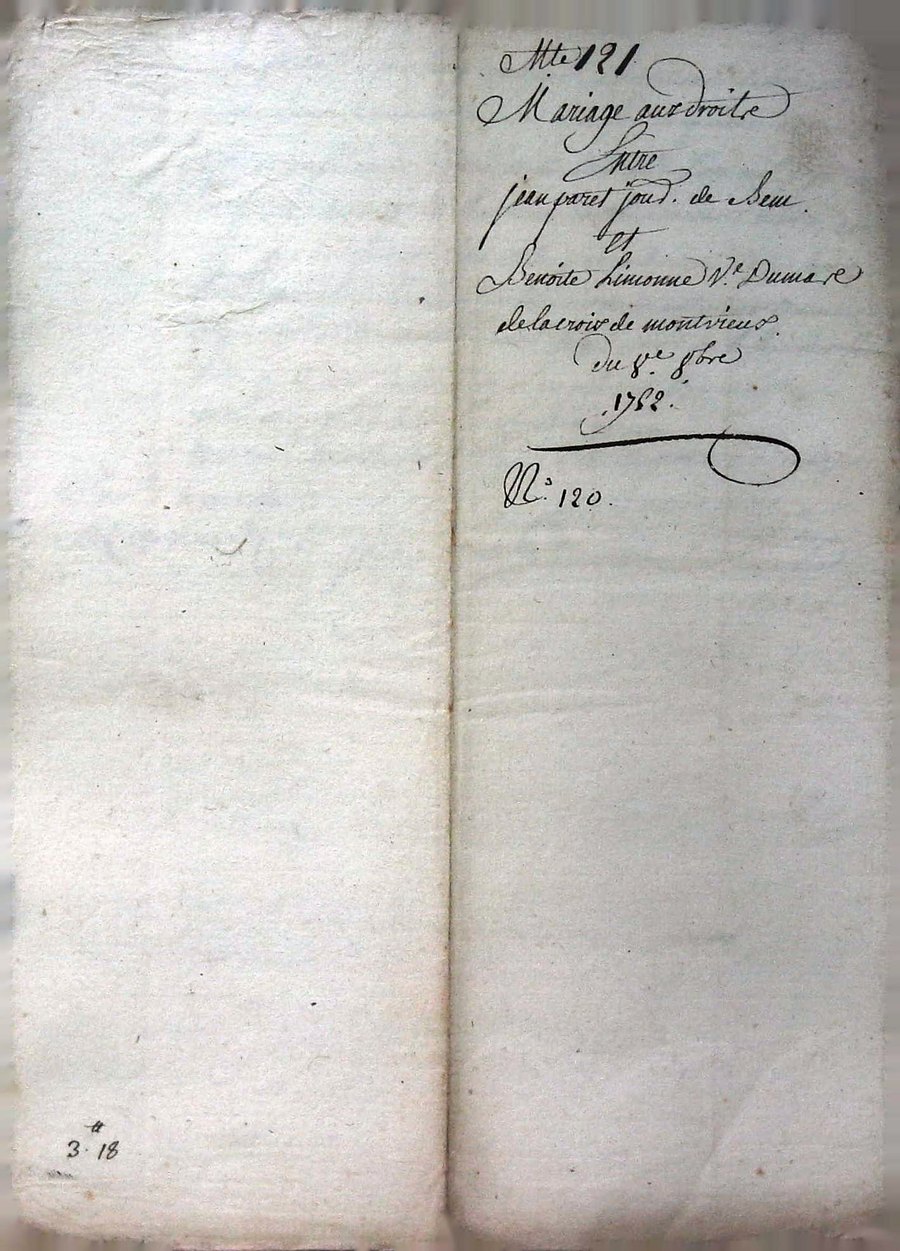 Mte 121
Mariage aux droits
Entre
jean paret jourd. de
et
Benoite Simonne Ve. Dumare
delacroix de montvieux
du 8e. 8bre
1752.
No. 120.
3.# 18